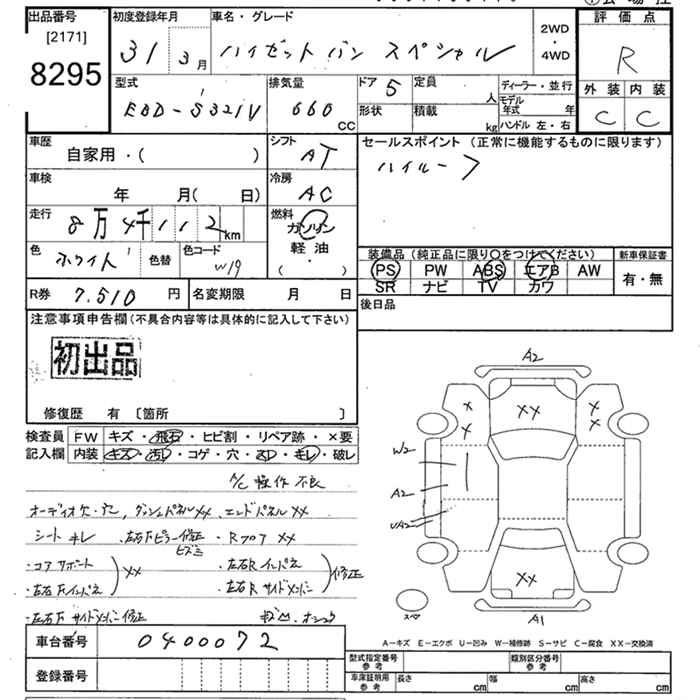 出品番号 初度登録年月 車名・グレード 2WD ・ 4WD 評価点
[2171]
8295 31 3月 ハイゼットバン スペシャル R
型式 排気量 ドア 5 定員 人 ディーラー・並行 外装 内装
EBD-S321V 660 CC 形状 積載 kg モデル年式 年 ハンドル 左・右 C C
車歴 自家用・( ) シフト AT セールスポイント (正常に機能するものに限ります)
車検 年 月(日) 冷房 AC ハイルーフ
走行 8万4千112km 燃料 ガソリン
色 ホワイト 色替 色コード W19 軽油 ( ・ )
装備品 (純正品に限り○をつけてください) 新車保証書
PS PW ABS エアB AW 有・無
SR ナビ TV カワ
R券 7.510円 名変期限 月 日 後日品
注意事項申告欄(不具合内容等は具体的に記入して下さい)
初出品
修復歴 有 〔箇所 〕
検査員 FW キズ・飛石・ヒビ割・リペア跡・×要
記入欄 内装 キズ・汚レ・コゲ・穴・スレ・キレ・破レ
A/C 操作 不良
オーディオ欠・穴, ダッシュパネルXX、エンドパネルXX
シート キレ ・左右Fピラー修正 ・RフロアXX
ヒズミ
・コアサポート ・左右Rインパネ
XX 修正
・左右Fインパネ ・左右R サイドメンバー
・左右F サイドメンバー修正
A2
X X XX X X
W2
A2
UA2
XX
スペア A1
A-キズ E-エクボ U-凹み W-補修跡 S-サビ C-腐食 XX-交換済
車台番号 0400072
型式指定番号 参考 類別区分番号 参考
登録番号 車庫証明用 参考 長さ cm 幅 cm 高さ cm